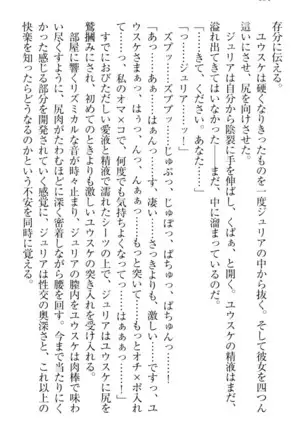 存分に伝える。
　ユウスケは硬くなりきったものを一度ジュリアの中から抜く。そして彼女を四つん
這いにさせ、尻を向けさせた。
　ジュリアは自分から陰裂に手を伸ばし、くぱぁ、と開く。ユウスケの精液はまだ、
溢れ出てきてはいなかった――まだ、中に溜まっているのだ。
「……きて、ください。あなた……」
「っ……ジュリア……ッ！」
　ズブッ……ズブブッ……じゅぷっ、じゅぽっ、ぱちゅっ、ぱちゅんっ……！
「あっ……あぁ……はぁぁ……す、凄い……さっきよりも、激しい……ですっ、ユ
ウスケさまぁっ、はぅっ、んっ、んぁぁっ……もっと突いて……もっとオチ×ポ入れ
て……っ、私のオマ×コで、何度でも気持ちよくなってっ……はぁぁぁっ……！」
　すでにおびただしい愛液と精液で濡れたシーツの上で、ジュリアはユウスケに尻を
鷲掴みにされ、初めてのときよりも激しいユウスケの突き入れを受け入れる。
　部屋に響くリズミカルな音が時々止まり、ジュリアの膣内をユウスケは肉棒で味わ
い尽くすように、尻肉がたわむほどに深く密着しながら腰を回す。今まで当たりにく
かった感じる部分を開発されていく感覚に、ジュリアは性交の奥深さと、これ以上の
快楽を知ったならどうなるのかという不安を同時に覚える。